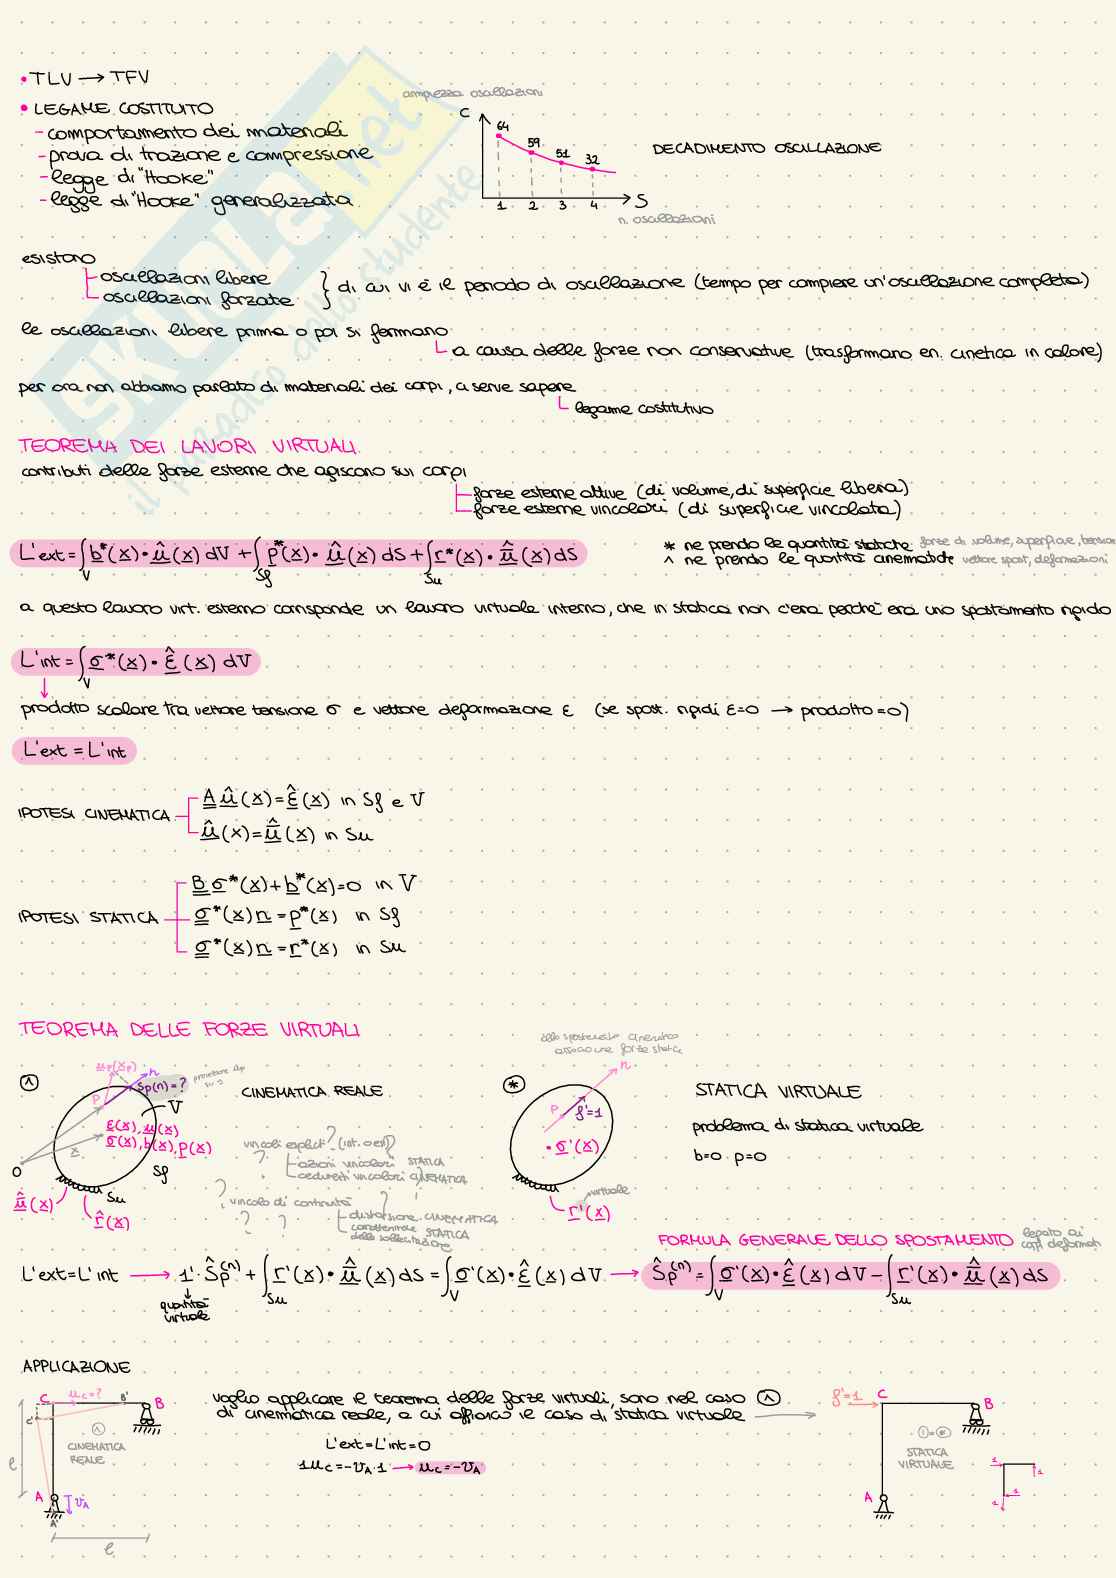 • TLV → TFV
• LEGAME COSTITUITO
- comportamento dei materiali
- prova di trazione e compressione
- legge di "Hooke"
- legge di "Hooke" generalizzata
ampiezza oscillazioni
C
64
59
51
32
1 2 3 4
S
n. oscillazioni
DECADIMENTO OSCILLAZIONE
SKUOLA.net
il paradiso dello studente
esistono
oscillazioni libere
oscillazioni forzate
} di cui vi è il periodo di oscillazione (tempo per compiere un'oscillazione completa)
le oscillazioni libere prima o poi si fermano
a causa delle forze non conservative (trasformano en. cinetica in calore)
per ora non abbiamo parlato di materiali dei corpi, a serve sapere
legame costitutivo
TEOREMA DEI LAVORI VIRTUALI
contributi delle forze esterne che agiscono sui corpi
forze esterne attive (di volume, di superficie libera)
forze esterne vincolari (di superficie vincolata)
L'ext = ∫V b*(x)•û(x) dV + ∫Sf p*(x)•û(x) dS + ∫Su r*(x)•û(x) dS
* ne prendo le quantità statiche forze di volume, superficie, tension
^ ne prendo le quantità cinematiche vettore spost, deformazioni
a questo lavoro virt. esterno corrisponde un lavoro virtuale interno, che in statica non c'era perchè era uno spostamento rigido
L'int = ∫V σ*(x)•ε̂(x) dV
prodotto scalare tra vettore tensione σ e vettore deformazione ε (se spost. rigidi ε=0 → prodotto=0)
L'ext = L'int
IPOTESI CINEMATICA
A û(x) = ε̂(x) in Sf e V
û(x) = û(x) in Su
IPOTESI STATICA
B σ*(x) + b*(x) = 0 in V
σ*(x) n = p*(x) in Sf
σ*(x) n = r*(x) in Su
TEOREMA DELLE FORZE VIRTUALI
^
up(xp)
n
Sp(n)=?
P
V
ε(x), u(x)
σ(x), b(x), p(x)
x
O
Sf
Su
û(x)
r̂(x)
CINEMATICA REALE
vincoli espliciti? (int. o est)
?
azioni vincolari STATICA
cedimenti vincolari CINEMATICA
?
vincolo di continuità
?
? ?
distorsione CINEMATICA
caratteristiche STATICA
della sollecitazione
allo spostamento cinematico
associo una forza statica
*
n
P
f'=1
• σ'(x)
virtuale
r'(x)
STATICA VIRTUALE
problema di statica virtuale
b=0 p=0
FORMULA GENERALE DELLO SPOSTAMENTO legato ai
corpi deformati
L'ext = L'int → 1'· Ŝp(n) + ∫Su r'(x)•û(x) dS = ∫V σ'(x)•ε̂(x) dV → Ŝp(n) = ∫V σ'(x)•ε̂(x) dV − ∫Su r'(x)•û(x) dS
quantità
virtuale
APPLICAZIONE
C
uc=?
B'
B
C'
^
CINEMATICA
REALE
l
A
vA
A'
l
voglio applicare il teorema delle forze virtuali, sono nel caso ^
di cinematica reale, a cui affianco il caso di statica virtuale
L'ext = L'int = 0
1uc = -vA·1 → uc = -vA
f'=1
C
B
STATICA
VIRTUALE
A
1
1
1
1